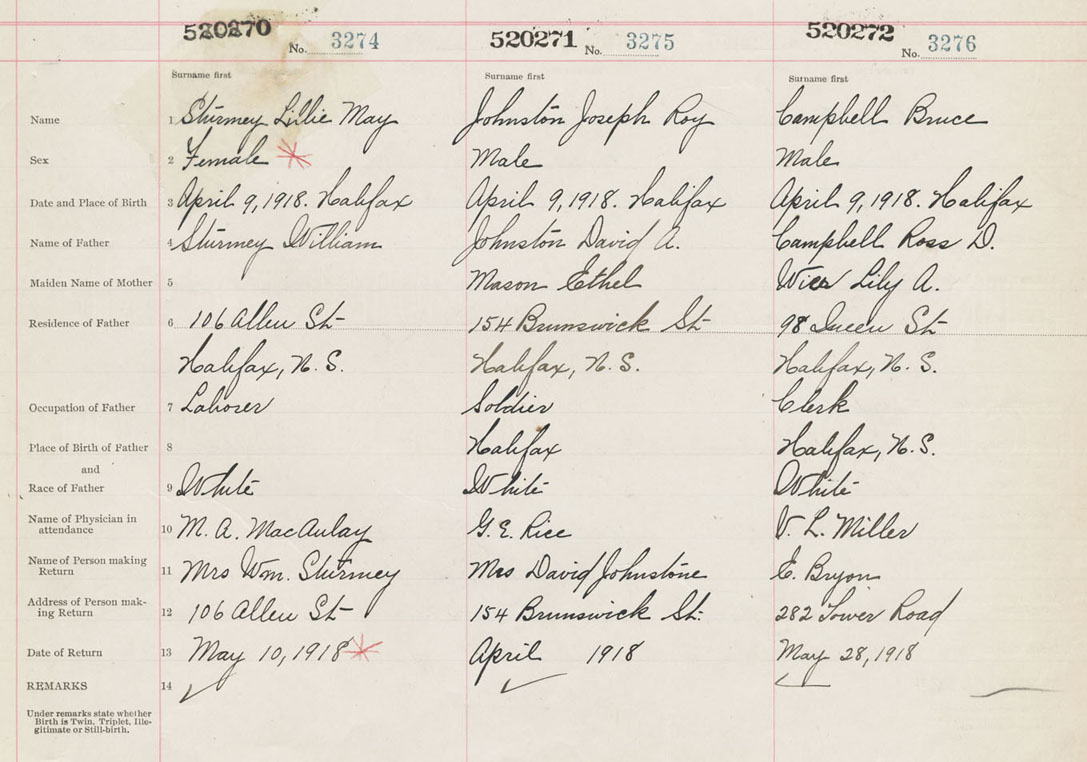 520270 No. 3274 520271 No. 3275 520272 No. 3276
Surname first Surname first Surname first
Name 1 Sturmey Lillie May Johnston Joseph Roy Campbell Bruce
Sex 2 Female Male Male
Date and Place of Birth 3 April 9, 1918. Halifax April 9, 1918. Halifax April 9, 1918. Halifax
Name of Father 4 Sturmey William Johnston David A. Campbell Ross D.
Maiden Name of Mother 5 Mason Ethel Wier Lily A.
Residence of Father 6 106 Allen St 154 Brunswick St 98 Queen St
Halifax, N. S. Halifax, N. S. Halifax, N. S.
Occupation of Father 7 Laborer Soldier Clerk
Place of Birth of Father 8 Halifax Halifax, N. S.
and
Race of Father 9 White White White
Name of Physician in
attendance 10 M. A. MacAulay G. E. Rice V. L. Miller
Name of Person making
Return 11 Mrs Wm. Sturmey Mrs David Johnstone E. Bryon
Address of Person mak-
ing Return 12 106 Allen St 154 Brunswick St. 282 Tower Road
Date of Return 13 May 10, 1918 April 1918 May 28, 1918
REMARKS 14
Under remarks state whether
Birth is Twin, Triplet, Ille-
gitimate or Still-birth.